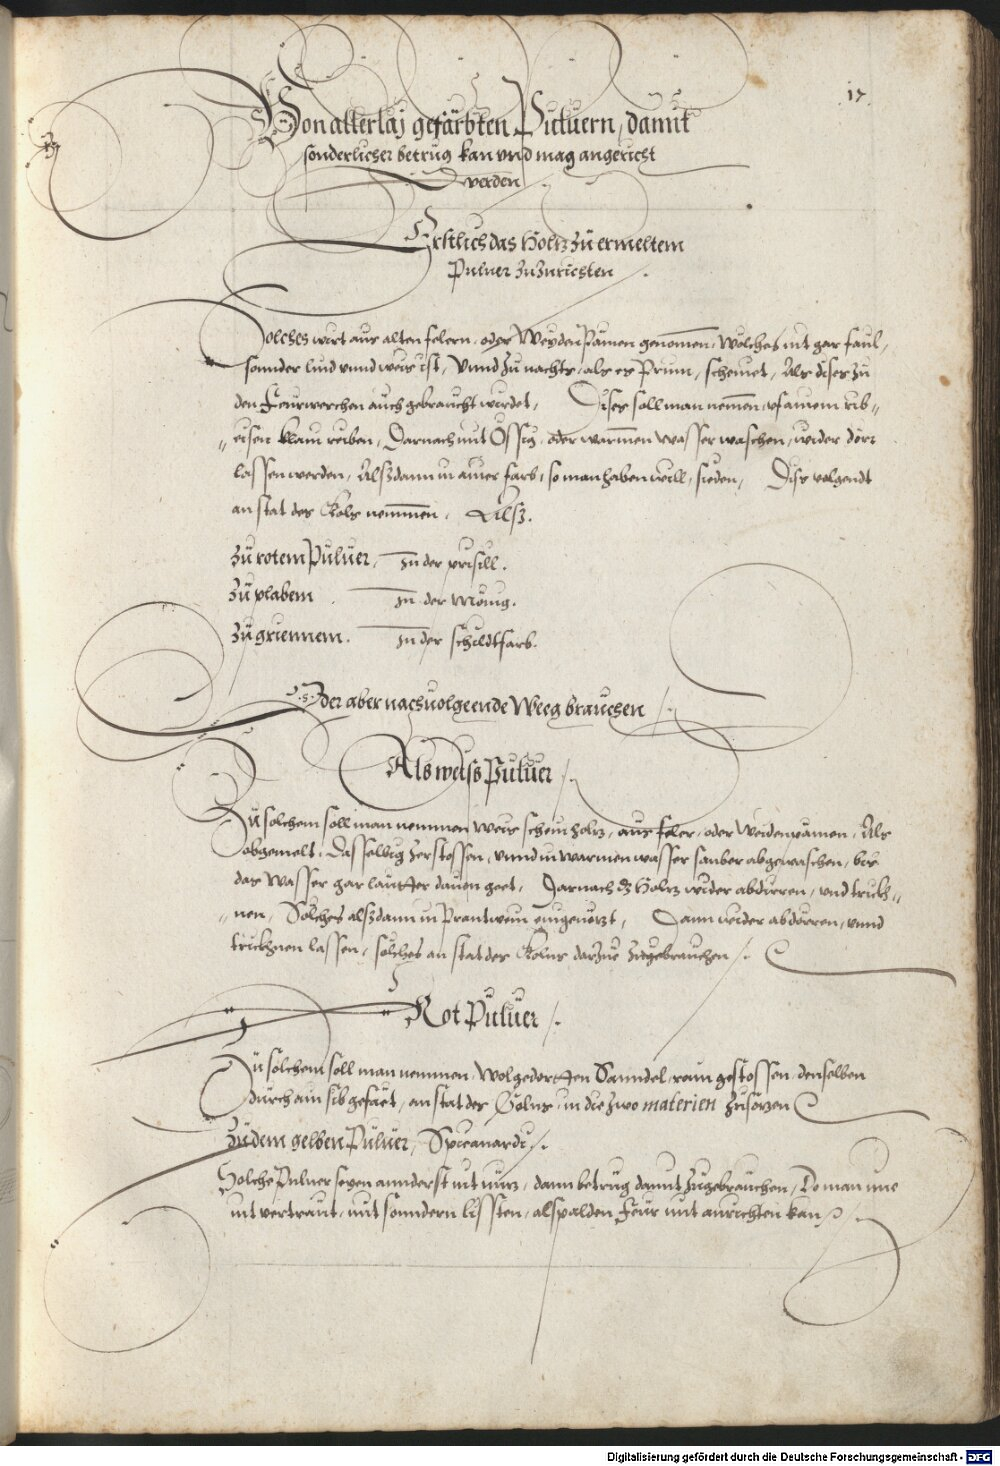 17.
Von allerlaj gefärbten Puluern, damit
sonderlicher betrüg kan vnd mag angericht
werden
Erstlich das Holtz zu ermeltem
Puluer zuzurichten
Solches wirt aus alten felern, oder Weyden Pämen genommen, Wölches nit gar faul,
sonnder lind vnnd weis ist, Vnnd zu nachts, als es Prinn, scheinet, Als dises zu
den Feurwerchen auch gebraucht wirdet, Dises soll man nemen, vf ainem rib-
eisen klain reiben, Darnach mit Össig, oder warmen wasser waschen, wider dörr
lassen werden, Alsdann in ainer farb, so man haben will, sieden, Dise volgendt
an stat der Kols nemmen, Alsz.
Zu rotem Puluer, In der prisill.
Zu plabem In der
Zu griennem. In der schildtfarb.
Oder aber nachuolgeende Weeg brauchen
Als weiss Puluer
Zu solchem soll man nemmen weis schein holtz, aus feler, oder Weidenpämen, Als
obgemelt, Dasselbig zerstossen, vnnd in warmen wasser sauber abgewaschen, bis
das Wasser gar lautter dauon geet, Darnach dz Holtz wider abdürren, vnd truck-
nen, Solches alsdann in Prantwein eingenetzt, Dann wider abdörren, vnnd
truckhnen lassen, solches an stat der Kolns darzue zugebrauchen
Rot Puluer
Zu solchem soll man nemmen, Wolgedortten Sanndel, rain gestossen, denselben
durch ain sib gefäet, an stat der Colns, in die zwo materien zusötzen
Zu dem gelben Puluer, Spicanardi.
Solche Puluer seyen annderst nit nutz, dann betrüg damit zugebrauchen, Do man
nit vertraut, mit sonndern lissten, alspalden Feur mit anrichten kan
Digitalisierung gefördert durch die Deutsche Forschungsgemeinschaft - DFG